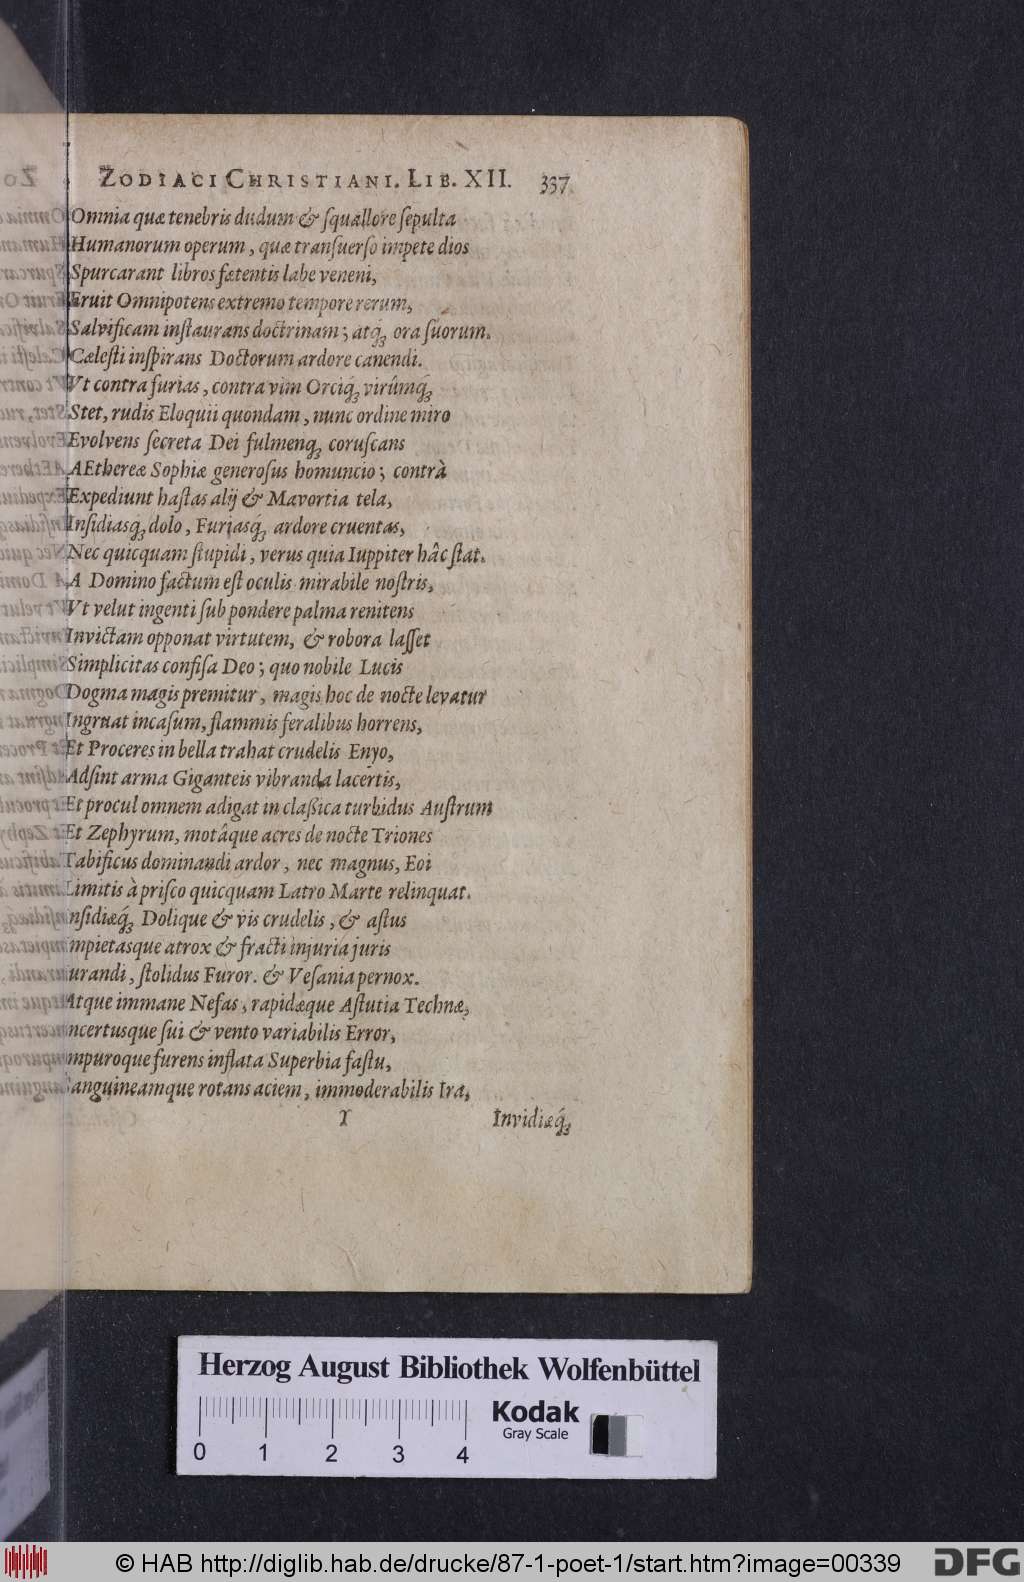 ZODIACI CHRISTIANI. LIB. XII. 337
Omnia quæ tenebris dudum & ſquallore ſepulta
Humanorum operum, quæ tranſuerſo impete dios
Spurcarant libros fœtentis labe veneni,
Eruit Omnipotens extremo tempore rerum,
Salvificam inſtaurans doctrinam; atq́ꝫ ora ſuorum.
Cæleſti inſpirans Doctorum ardore canendi.
Vt contra furias, contra vim Orciq́ꝫ virûmq́ꝫ
Stet, rudis Eloquii quondam, nunc ordine miro
Evolvens ſecreta Dei fulmenqꝫ coruſcans
AEthereæ Sophiæ generoſus homuncio; contrà
Expediunt haſtas alij & Mavortia tela,
Inſidiasq́ꝫ dolo, Furiasq́ꝫ ardore cruentas,
Nec quicquam ſtupidi, verus quia Iuppiter hâc ſtat.
A Domino factum eſt oculis mirabile noſtris,
Vt velut ingenti ſub pondere palma renitens
Invictam opponat virtutem, & robora laſſet
Simplicitas confiſa Deo; quo nobile Lucis
Dogma magis premitur, magis hoc de nocte levatur
Ingruat incaſum, flammis feralibus horrens,
Et Proceres in bella trahat crudelis Enyo,
Adſint arma Giganteis vibranda lacertis,
Et procul omnem adigat in claßica turbidus Auſtrum
Et Zephyrum, motâque acres de nocte Triones
Tabificus dominandi ardor, nec magnus, Eoi
Limitis à priſco quicquam Latro Marte relinquat.
nſidiæq́ꝫ Dolique & vis crudelis, & aſtus
mpietasque atrox & fracti injuria juris
urandi, ſtolidus Furor. & Veſania pernox.
Atque immane Nefas, rapidæque Aſtutia Technæ,
ncertusque ſui & vento variabilis Error,
mpuroque furens inflata Superbia faſtu,
Sanguineamque rotans aciem, immoderabilis Ira,
Y Invidiæq́ꝫ
Herzog August Bibliothek Wolfenbüttel
Kodak
Gray Scale
0 1 2 3 4
© HAB http://diglib.hab.de/drucke/87-1-poet-1/start.htm?image=00339
DFG